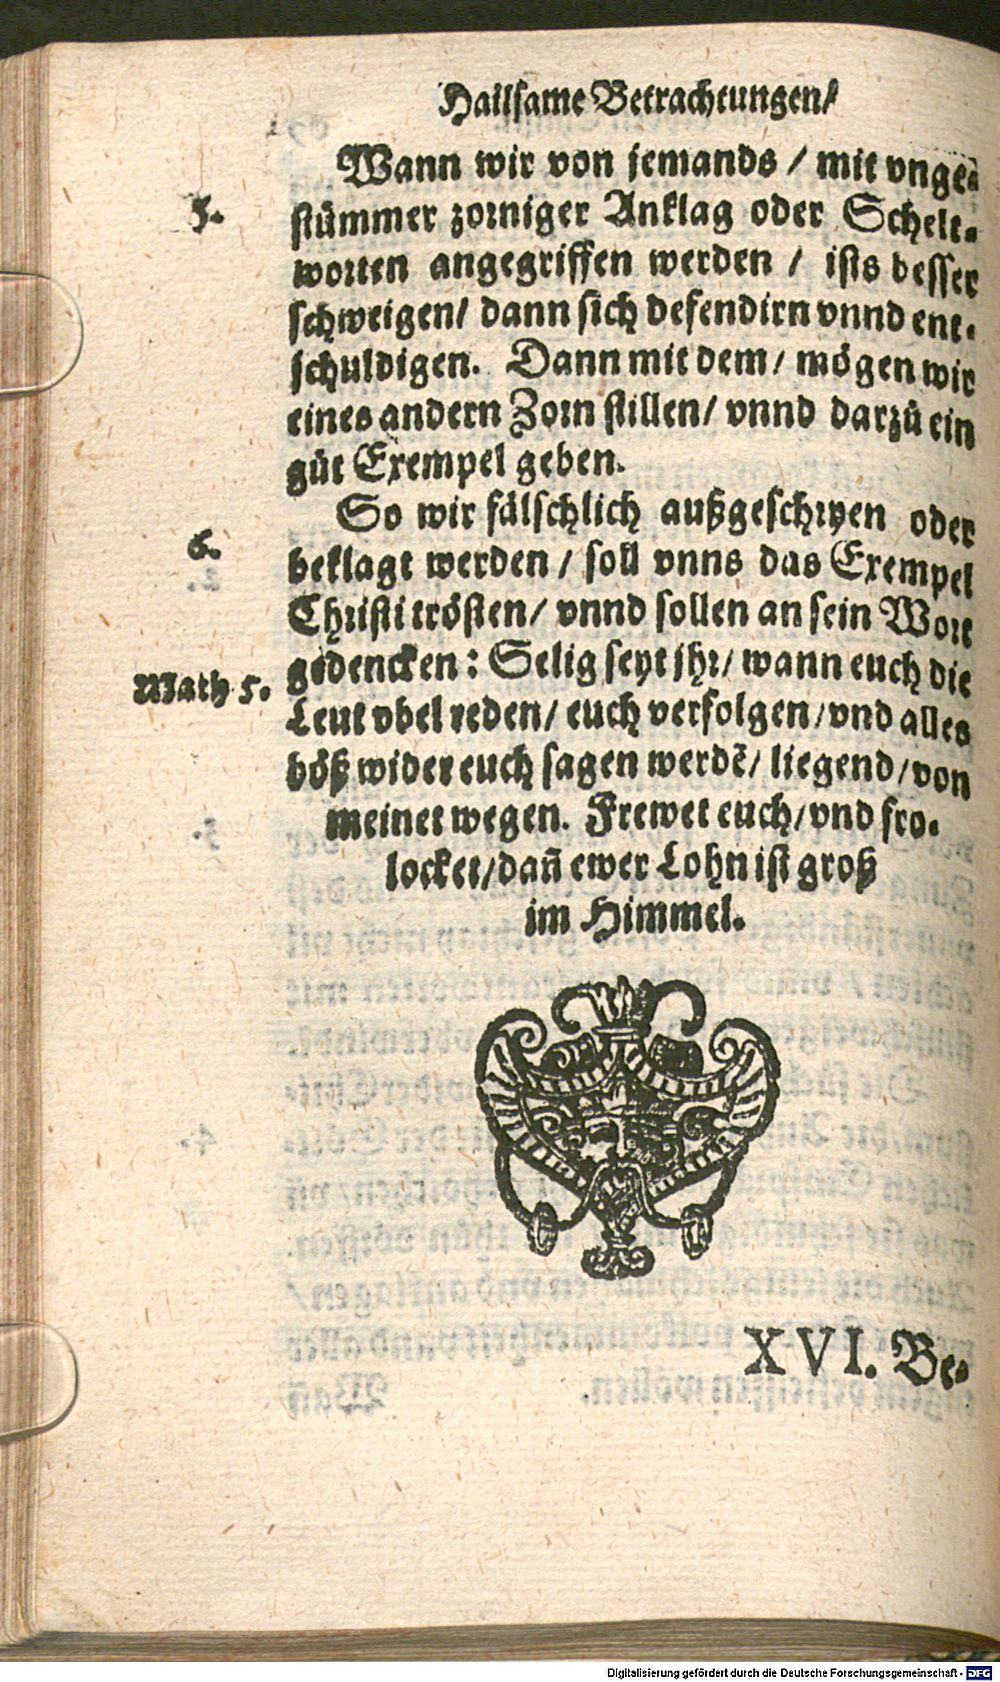 Hailsame Betrachtungen/
Wann wir von jemands / mit vnge-
5.
stümmer zorniger Anklag oder Schelt-
worten angegriffen werden / ists besser
schweigen/ dann sich defendirn vnnd ent-
schuldigen. Dann mit dem/ mögen wir
eines andern Zorn stillen/ vnnd darzů ein
gůt Exempel geben.
So wir fälschlich außgeschryen oder
6.
beklagt werden / soll vnns das Exempel
Christi trösten/ vnnd sollen an sein Wort
gedencken: Selig seyt jhr/ wann euch die
Math 5.
Leut vbel reden/ euch verfolgen/ vnd alles
böß wider euch sagen werdē/ liegend/ von
meinet wegen. Frewet euch/ vnd fro-
locket/ dañ ewer Lohn ist groß
im Himmel.
XVI. Be-
Digitalisierung gefördert durch die Deutsche Forschungsgemeinschaft - DFG